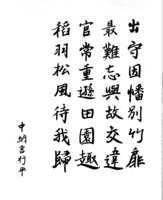 出守因幡別竹扉
最難忘與故交違
官常重遜田園趣
稻羽松風待我歸
中納言行平